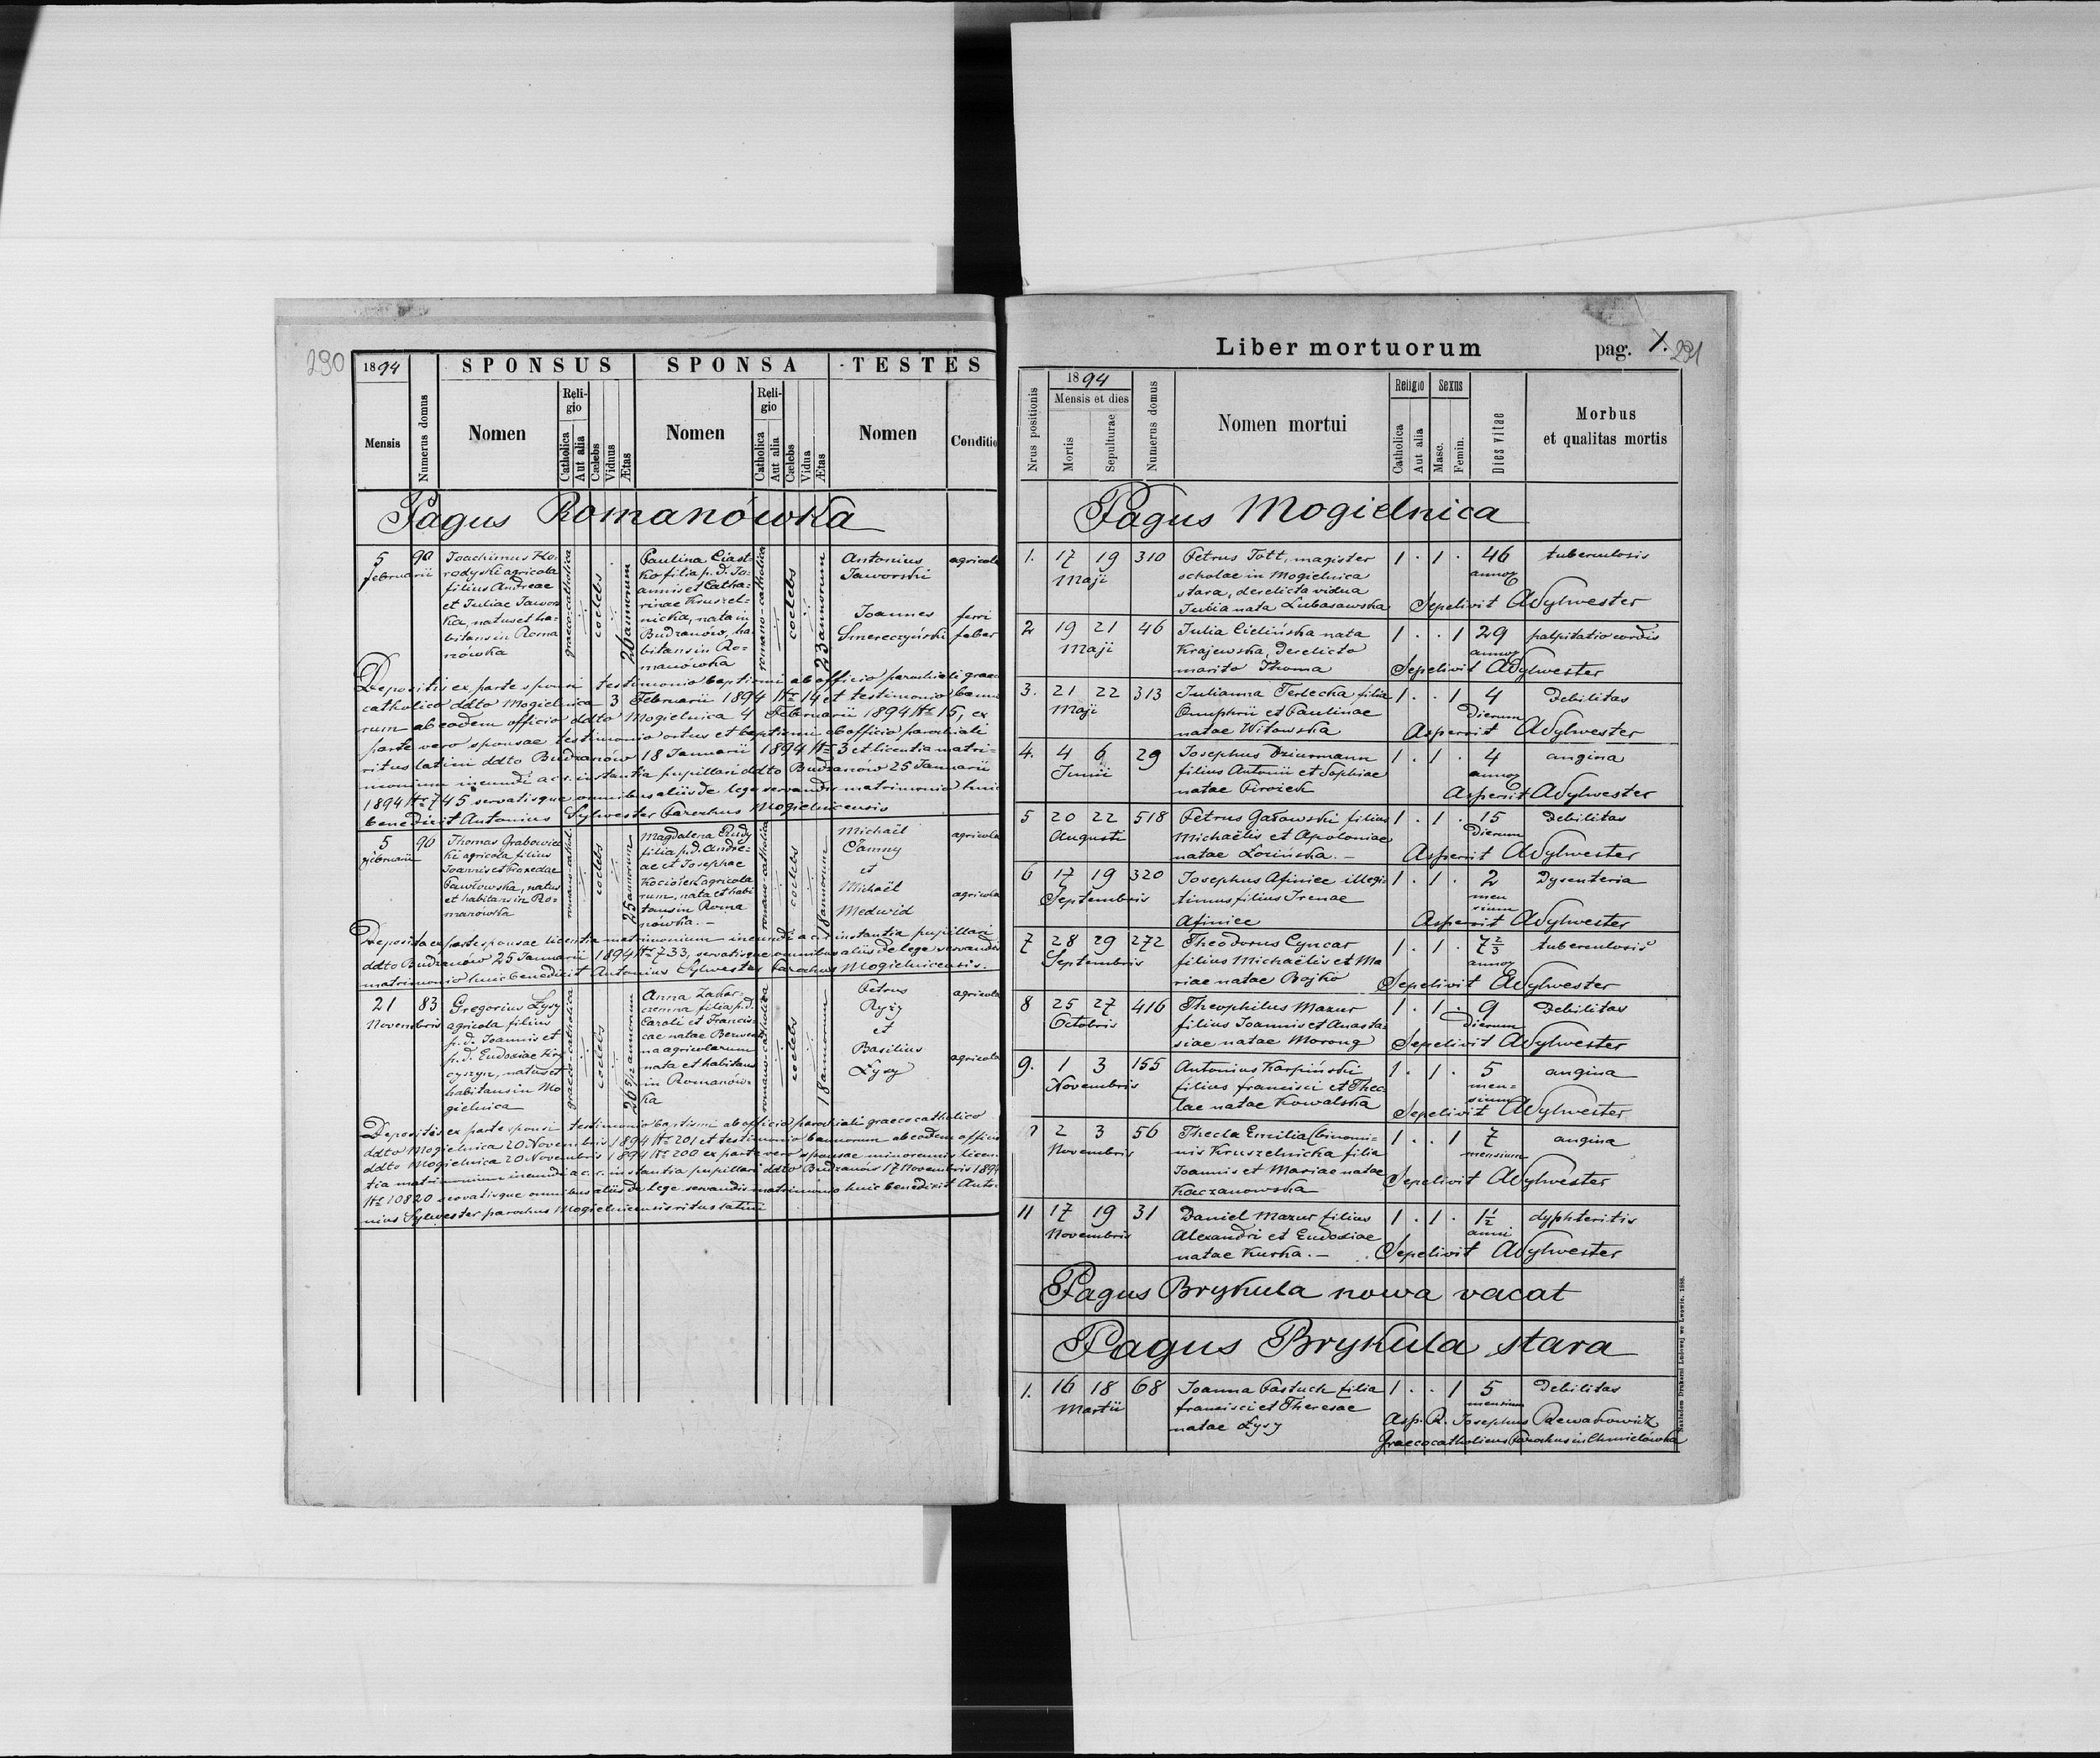 290
1894
SPONSUS
SPONSA
TESTES
Mensis
Numerus domus
Nomen
Religio
Catholica
Aut alia
Cælebs
Viduus
Ætas
Nomen
Religio
Catholica
Aut alia
Cælebs
Vidua
Ætas
Nomen
Conditio
Pagus Romanówka
5 februarii
90
Joachimus Ho=
rodyski agricola
filius Andreae
et Juliae Jawor
ka, natus et ha=
bitans in Roma
nówka
graeco-catholica
coelebs
26 annorum
Paulina Ciast=
ko filia p. d. Jo=
annis et Catha=
rinae Kruszel=
nicka, nata in
Budzanów, ha=
bitans in Ro=
manówka
romano-catholica
coelebs
23 annorum
Antonius
Jaworski
agricola
Joannes
Smereczyński
ferri
faber
Depositis ex parte sponsi testimonio baptismi ab officio parochiali graeco
catholico ddto Mogielnica 3 Februarii 1894 Nr 14 et testimonio banno
rum ab eodem officio ddto Mogielnica 4 Februarii 1894 Nr 15, ex
parte vero sponsae testimonio ortus et baptismi ab officio parochiali
ritus latini ddto Budzanów 18 Januarii 1894 Nr 3 et licentia matri=
monium ineundi a c. r. instantia pupillari ddto Budzanów 25 Januarii
1894 Nr 745 servatisque omnibus aliis de lege servandis matrimonio huic
benedixit Antonius Sylwester Parochus Mogielnicensis
5 februarii
90
Thomas Grabowiec
ki agricola filius
Joannis et Praxedae
Pawłowska, natus
et habitans in Ro=
manówka
romano-cathol.
coelebs
25 annorum
Magdalena Rudy
filia p. d. Andre=
ae et Josephae
Kociołek agricola
rum, nata et habi
tans in Roma
nówka. –
romano-catholica
coelebs
18 annorum
Michaël
Czarny
et
Michaël
Medwid
agricola
agricola
Deposita ex parte sponsae licentia matrimonium ineundi a c. r. instantia pupillari
ddto Budzanów 25 Januarii 1894 Nr 733, servatisque omnibus aliis de lege servandis
matrimonio huic benedixit Antonius Sylwester Parochus Mogielnicensis.
21 Novembris
83
Gregorius Łysy
agricola filius
p. d. Joannis et
p. d. Eudoxiae
natus et
habitans in Mo
gielnica
graeco-catholica
coelebs
26 5/12 annorum
Anna Zakar=
czemna filia p. d.
Caroli et Francis=
cae natae
na agricolarum
nata et habitans
in Romanów=
ka
romano-catholica
coelebs
18 annorum
Petrus
Ryży
et
Basilius
Łysy
agricola
agricola
Depositis ex parte sponsi testimonio baptismi ab officio parochiali graeco catholico
ddto Mogielnica 20 Novembris 1894 Nr 201 et testimonio bannorum ab eodem officio
ddto Mogielnica 20 Novembris 1894 Nr 200 ex parte vero sponsae minorennis licen
tia matrimonium ineundi a c. r. instantia pupillari ddto Budzanów 17 Novembris 1894
Nr 10820 servatisque omnibus aliis de lege servandis matrimonio huic benedixit Anto=
nius Sylwester parochus Mogielnicensis ritus latini
Liber mortuorum
pag. 1.
291
Nrus positionis
1894
Mensis et dies
Mortis
Sepulturae
Numerus domus
Nomen mortui
Religio
Catholica
Aut alia
Sexus
Masc.
Femin.
Dies vitae
Morbus
et qualitas mortis
Pagus Mogielnica
1. 17 19 310 Petrus Tott, magister 1 . 1 . 46 tuberculosis
Maji scholae in Mogielnica annor
stara, derelicta vidua
Julia nata Lubasowska Sepelivit ASylwester
2 19 21 46 Julia Cielińska nata 1 . . 1 29 palpitatio cordis
Maji Krajewska, derelicto annor
marito Thoma Sepelivit ASylwester
3. 21 22 313 Julianna Terlecka filia 1 . . 1 4 Debilitas
Maji Onuphrii et Paulinae Dierum
natae Witowska Aspersit ASylwester
4. 4 6 29 Josephus Dziurmann 1 . 1 . 4 angina
Junii filius Antonii et Sophiae annor
natae Pirożek Aspersit ASylwester
5 20 22 518 Petrus Gałowski filius 1 . 1 . 15 Debilitas
Augusti Michaëlis et Apoloniae Dierum
natae Łozińska. – Aspersit ASylwester
6 17 19 320 Josephus Afiniec illegi= 1 . 1 . 2 Dysenteria
Septembris timus filius Irenae mensium
Afiniec Aspersit ASylwester
7 28 29 272 Theodorus Cyncar 1 . 1 . 7 2/3 tuberculosis
Septembris filius Michaëlis et Ma annor
riae natae Bojko Sepelivit ASylwester
8 25 27 416 Theophilus Mazur 1 . 1 . 9 Debilitas
Octobris filius Joannis et Anasta= Dierum
siae natae Morong Sepelivit ASylwester
9. 1 3 155 Antonius Karpiński 1 . 1 . 5 angina
Novembris filius francisci et Thec mensium
lae natae Kowalska Sepelivit ASylwester
2 3 56 Thecla Emilia (binomi= 1 . . 1 7 angina
Novembris nis Kruszelnicka filia mensium
Joannis et Mariae natae
Kaczanowska Sepelivit ASylwester
11 17 19 31 Daniel Mazur filius 1 . 1 . 1 1/2 dyphteritis
Novembris Alexandri et Eudoxiae anni
natae Kurka. – Sepelivit ASylwester
Pagus Brykula nowa vacat
Pagus Brykula stara
1. 16 18 68 Joanna Pastuch filia 1 . . 1 5 Debilitas
Martii francisci et Theresae mensium
natae Łysy Asp. R. Josephus Rewakowicz
Graeco catholicus Parochus in Chmielówka
Nakładem Drukarni Ludowej we Lwowie.